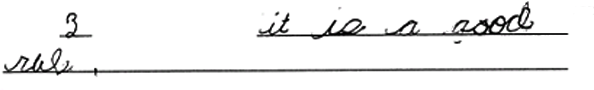 3 it is a good
rule.